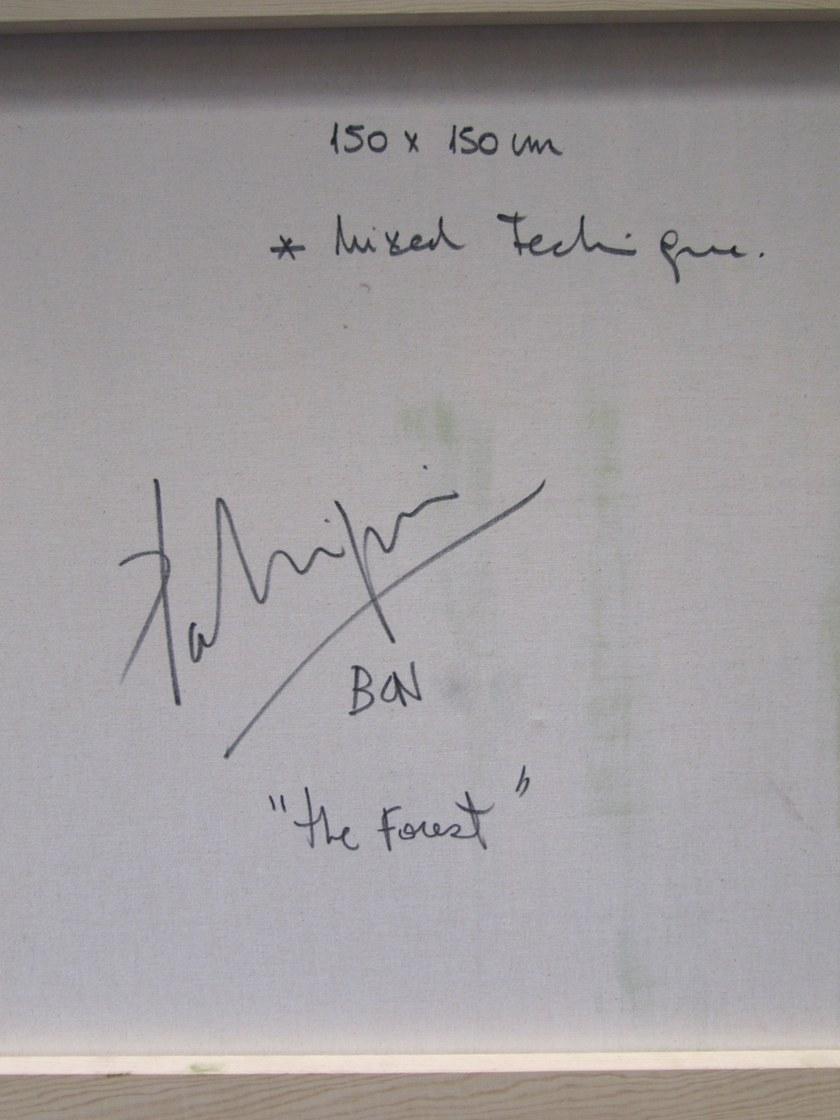 150 x 150 cm
* Mixed Technique.
BCN
"the Forest"